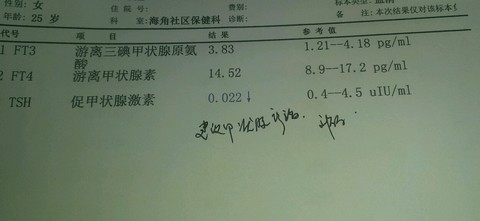 性别: 女 住 院 号: 费别:
年龄: 25 岁 科 室: 海角社区保健科 诊断: 备 注: 本次结果仅对该标本
代号 项 目 结果 参 考 值
1 FT3 游离三碘甲状腺原氨酸 3.83 1.21--4.18 pg/ml
2 FT4 游离甲状腺素 14.52 8.9--17.2 pg/ml
TSH 促甲状腺激素 0.022↓ 0.4--4.5 uIU/ml
建议甲状腺